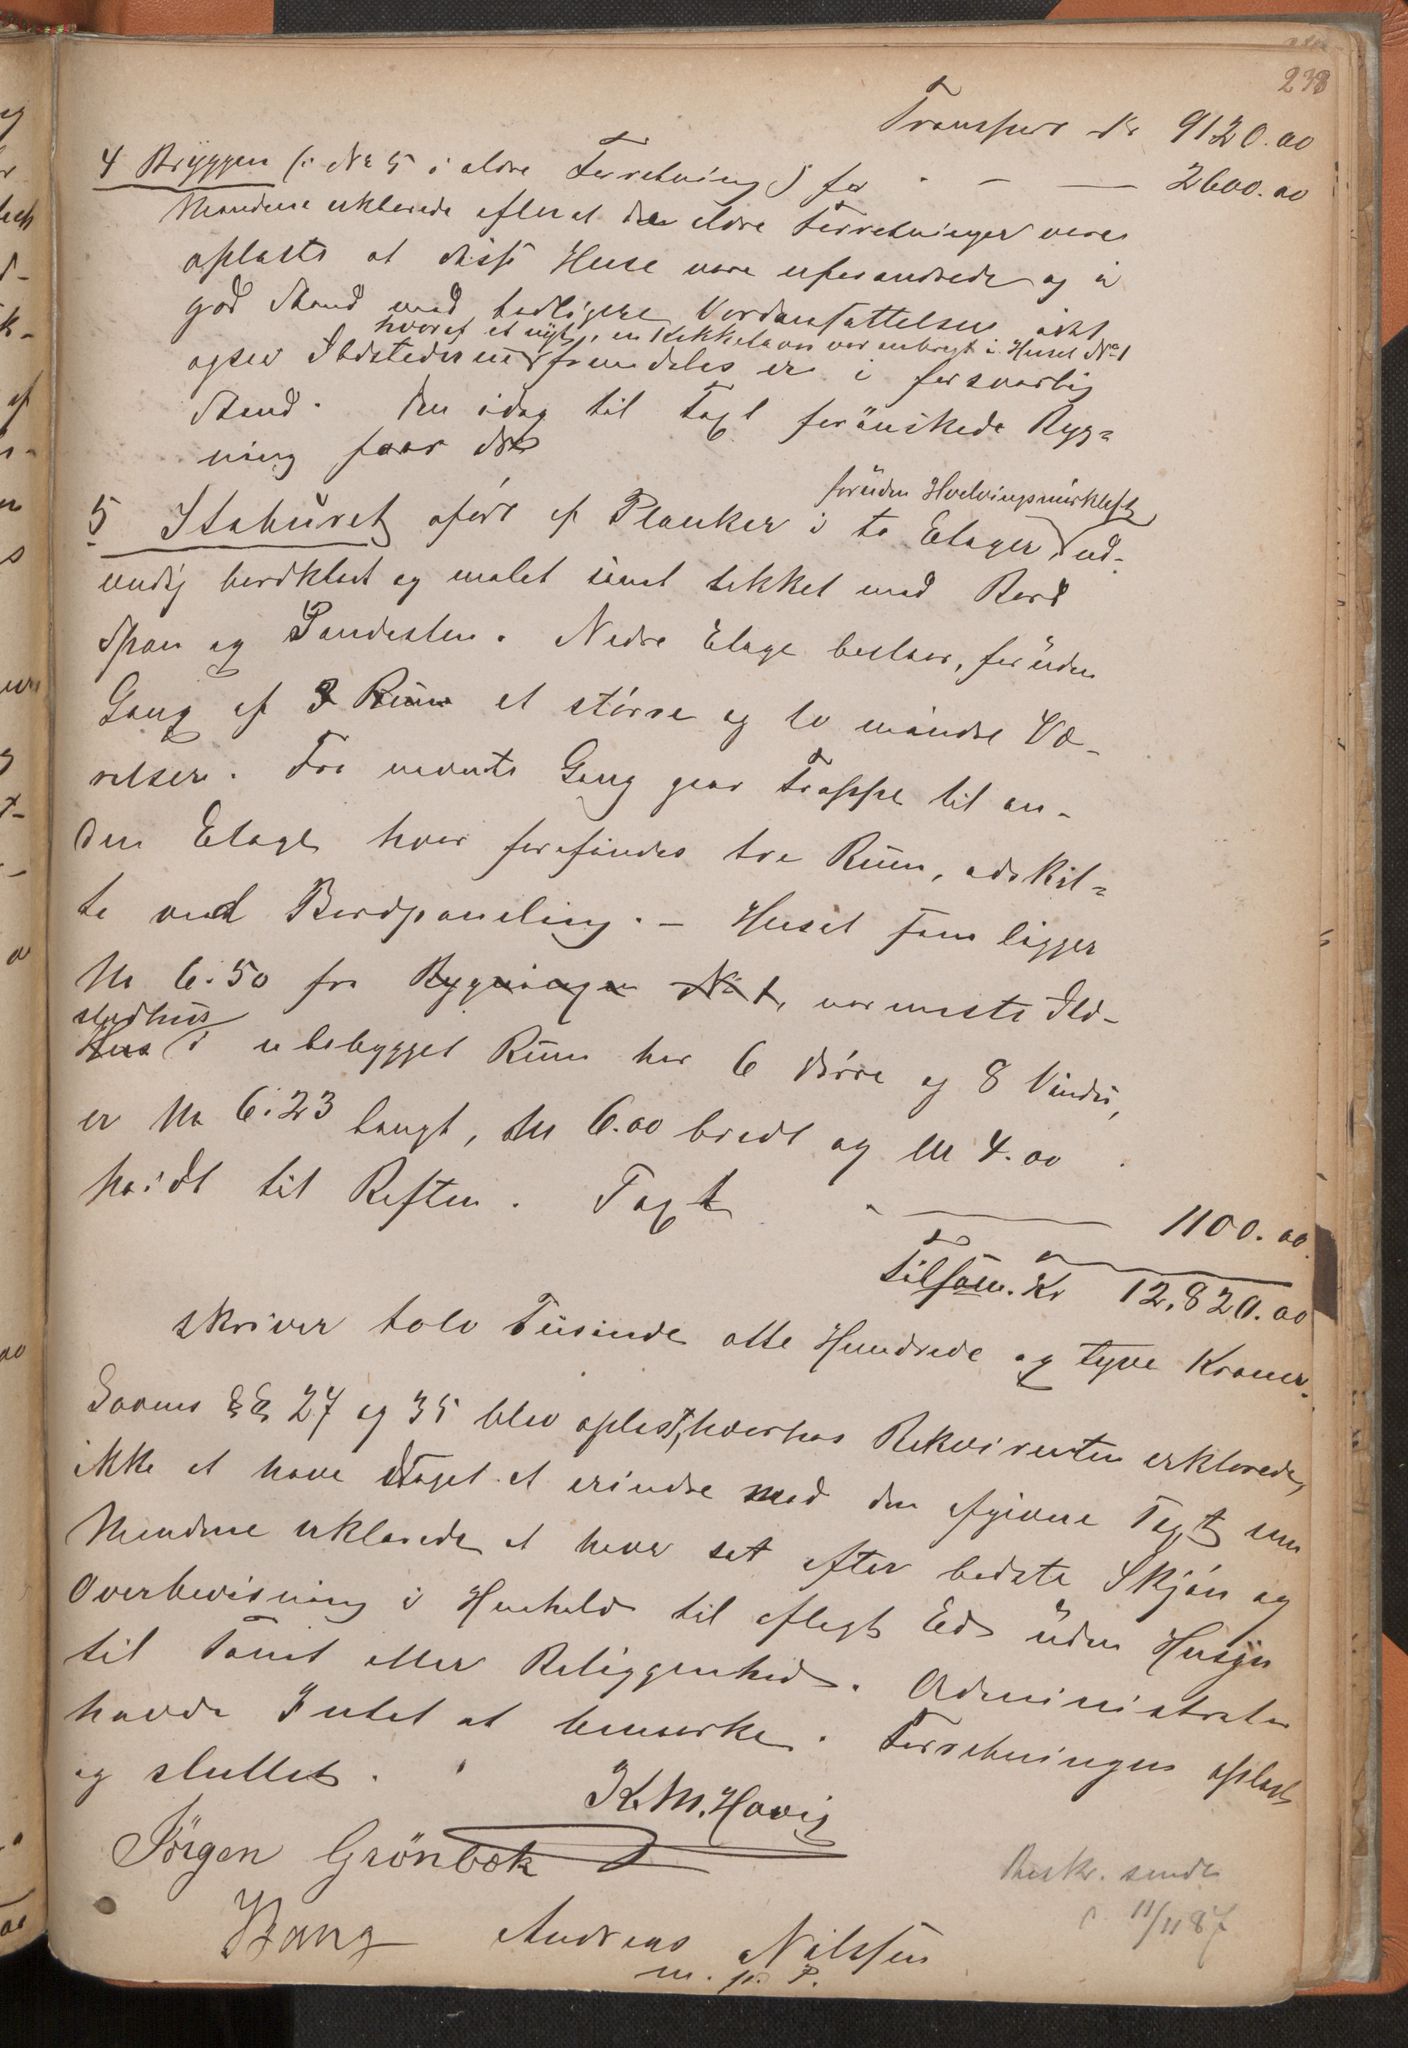 238
Transport Kr 9120.00
4 Bryggen (: No 5 i eldre Forretning) for - - — 2600.00
Mændene erklærede efterat den eldre Forretninger vare
oplæste at disse Huse vare uforandrede og i
god Stand med tidligere Værdiansættelse, idet
hvoraf et nyt, en Kokkelovn var anbragt i Huset No 1
ogsaa Ildstederne fremdeles er i forsvarlig
Stand. Den idag til Taxt forönskede Byg=
ning faar No
foruden Hvelvingsmörkloft
5 Stabüret opfört af Planker i to Etager ud-
vendig bordklædt og malet samt tækket med Bord
Spon og Tandesten. Nedre Etage bestaar, forüden
Gang af 3 Rüm et större og to mindre Væ-
relser. Fra nævnte Gang gaar Trappe til an-
den Etage hvor forefindes tre Rüm, adskil=
te ved Bordpaneling. – Huset som ligger
M 6.50 fra Bygningen No 1, nærmeste Ild-
stedhüs
Hus i ubebygget Rüm har 6 Dörre og 8 Vindü,
er M 6.23 langt, M 6.00 bredt og M 4.00
höidt til Röften. Taxt — 1100.00
Tilsam. Kr 12,820.00
skriver tolv Tüsinde otte Hundrede og tyve Kroner.
Lovens §§ 27 og 35 blev oplæst, hvorhos Rekvirenten erklærede,
ikke at have Noget at erindre med den afgivne Taxt som
Mændene erklærede at have sat efter bedste Skjön og
Overbevisning i Henhold til aflagt Ed üden Hensyn
til Tomt eller Beliggenhed. Administrator
havde Intet at bemærke. Forretningen oplæst
og sluttet.
K. M. Havig
Jörgen Grönbæk
Bang Andreas Nilssen
m. p. P.
Beskr. sendt
d. 11/11 87